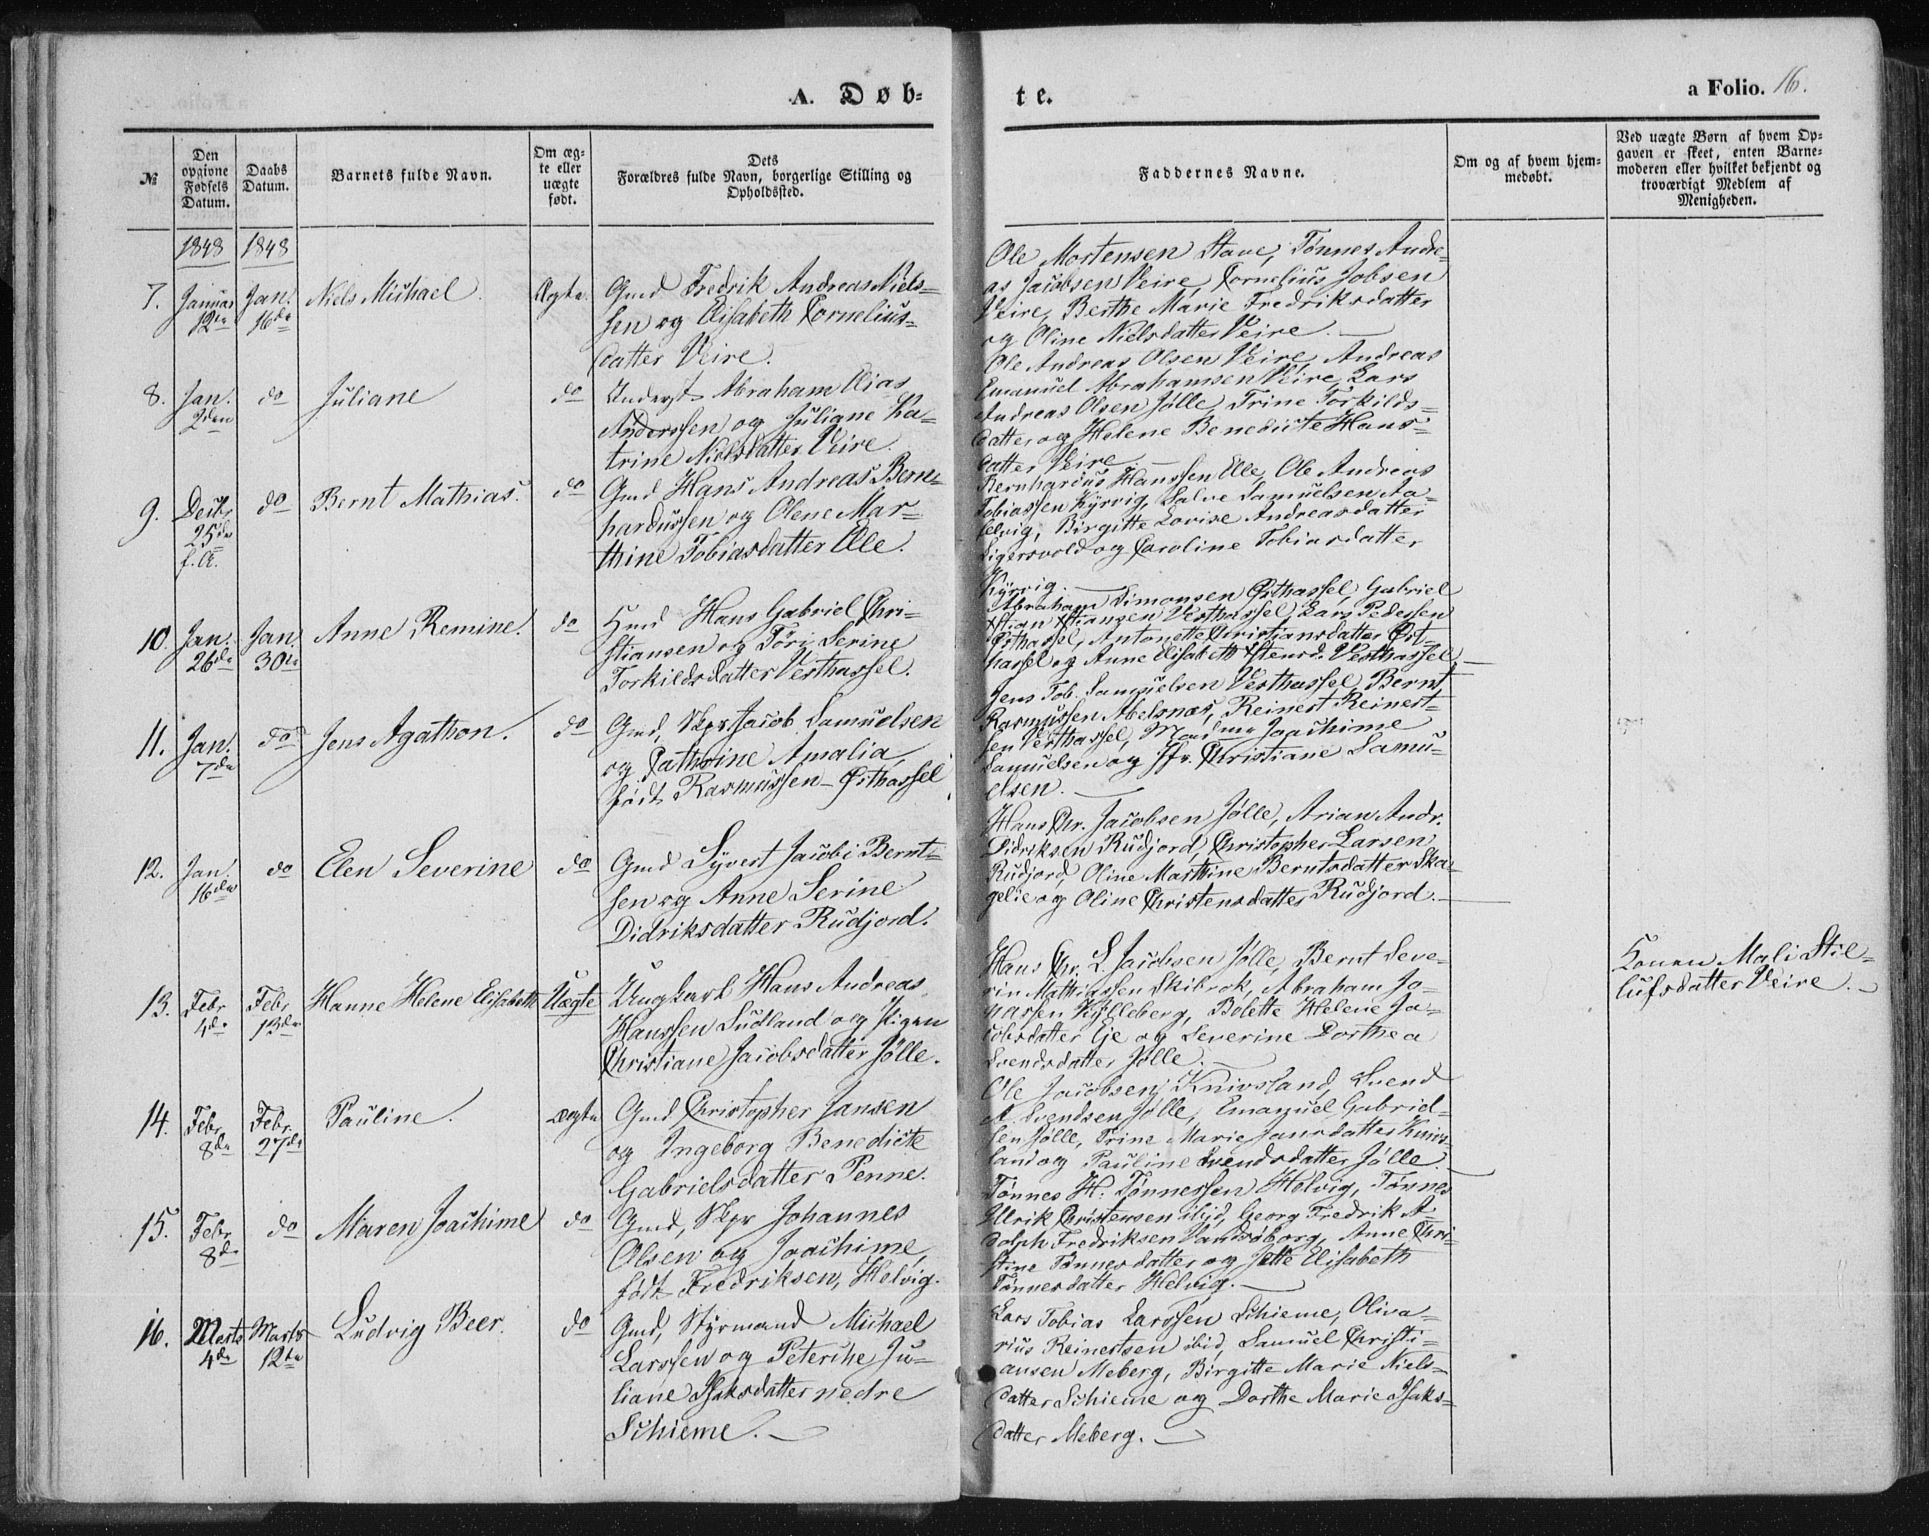 A. Døb-
te.
a Folio. 16.
№
Den opgivne Fødsels Datum.
Daabs Datum.
Barnets fulde Navn.
Om ægte eller uægte født.
Dets Forældres fulde Navn, borgerlige Stilling og Opholdssted.
Faddernes Navne.
Om og af hvem hjemmedøbt.
Ved uægte Børn af hvem Opgaven er skeet, enten Barnemoderen eller hvilket bekjendt og troværdigt Medlem af Menigheden.
1848 1848
7. Januar 12te
Jan. 16de
Niels Michael.
Ægte
Gmd Fredrik Andreas Niels-
sen og Elisabeth Cornelius-
datter Veire.
Ole Mortensen Stave, Tønnes Andre-
as Jacobsen Veire, Cornelius Jobsen
Veire, Berthe Marie Fredriksdatter
og Oline Nielsdatter Veire.
8. Jan. 2den
do
Juliane
do
Inderst Abraham Elias
Anderssen og Juliane Ka-
trine Nielsdatter Veire.
Ole Andreas Olsen Veire, Andreas
Emanuel Abrahamsen Veire, Lars
Andreas Olsen Jølle, Trine Torkilds-
datter og Helene Benedicte Hans-
datter Veire
9. Decbr 25de f. A.
do
Bernt Mathias.
do
Gmd Hans Andreas Bern-
hardussen og Olene Mar-
thine Tobiasdatter Elle.
Bernhardus Hanssen Elle, Ole Andreas
Tobiassen Kyrvig, Salve Samuelsen Aa-
selvig, Birgitte Lovise Andreasdatter
Sigersvold og Caroline Tobiasdatter
Kyrvig.
10. Jan. 26de
Jan 30te
Anne Remine.
do
Hmd Hans Gabriel Chri-
stiansen og Tøri Serine
Torkildsdatter Vesthassel.
Abraham Simonsen Østhassel, Gabriel
Xstian Xstiansen Vesthassel, Lars Pedersen
Østhassel, Antonette Christiansdatter Øst-
hassel og Anne Elisabeth Xstensd. Vesthassel
11. Jan. 7de
do
Jens Agathon.
do
Gmd, Skpr Jacob Samuelsen
og Cathrine Amalia,
født Rasmussen - Østhassel
Jens Tob. Samuelsen Vesthassel, Bernt
Rasmussen Abelsnæs, Reinert Reinert-
sen Vesthassel, Madme Joachime
Samuelsen og Jfr. Christiane Samu-
elsen.
12. Jan. 16den
do
Elen Severine
do
Gmd Syvert Jacobi Bernt-
sen og Anne Serine
Didriksdatter Rudjord.
Hans Chr. Jacobsen Jølle, Arian Andr.
Didriksen Rudjord, Christopher Larsen
Rudjord, Oline Marthine Berntsdatter Ska-
gelie og Oline Christensdatter Rudjord.
13. Febr 4de
Febr 13de
Hanne Helene Elisabeth
Uægte
Ungkarl Hans Andreas
Hanssen Sudland og Pigen
Christiane Jacobsdatter Jølle.
Hans Chr. L. Jacobsen Jølle, Bernt Seve-
rin Mathiassen Skibrok, Abraham Jo-
nassen Kylleberg, Bolette Helene Ja-
cobsdatter Eje og Severine Dorthea
Svendsdatter Jølle.
Konen Mali Stil-
lufsdatter Veire.
14. Febr 8de
Febr. 27de
Pauline.
ægte
Gmd Christopher Jansen
og Ingeborg Benedicte
Gabrielsdatter Penne.
Ole Jacobsen Knivsland, Svend
A. Svendsen Jølle, Emanuel Gabriel-
sen Jølle, Trine Marie Jansdatter Knivs-
land og Pauline Svendsdatter Jølle.
15. Febr 8de
do
Maren Joachime
do
Gmd, Skpr Johannes
Olsen og Joachime,
født Fredriksen, Helvig.
Tønnes H. Tønnessen Helvig, Tønnes
Ulrik Christensen ibid, Georg Fredrik A-
dolph Fredriksen Vansøborg, Anne Chri-
stine Tønnesdatter og Jette Elisabeth
Tønnesdatter Helvig.
16. Marts 4de
Marts 12te
Ludvig Beer.
do
Gmd, Styrmand Michael
Larssen og Peterike Ju-
liane Isaksdatter nedre
Schieme.
Lars Tobias Larssen Schieme, Oliva-
rius Reinertsen ibid, Samuel Christi-
ansen Meberg, Birgitte Marie Niels-
datter Schieme og Dorthe Marie Isaks-
datter Meberg.